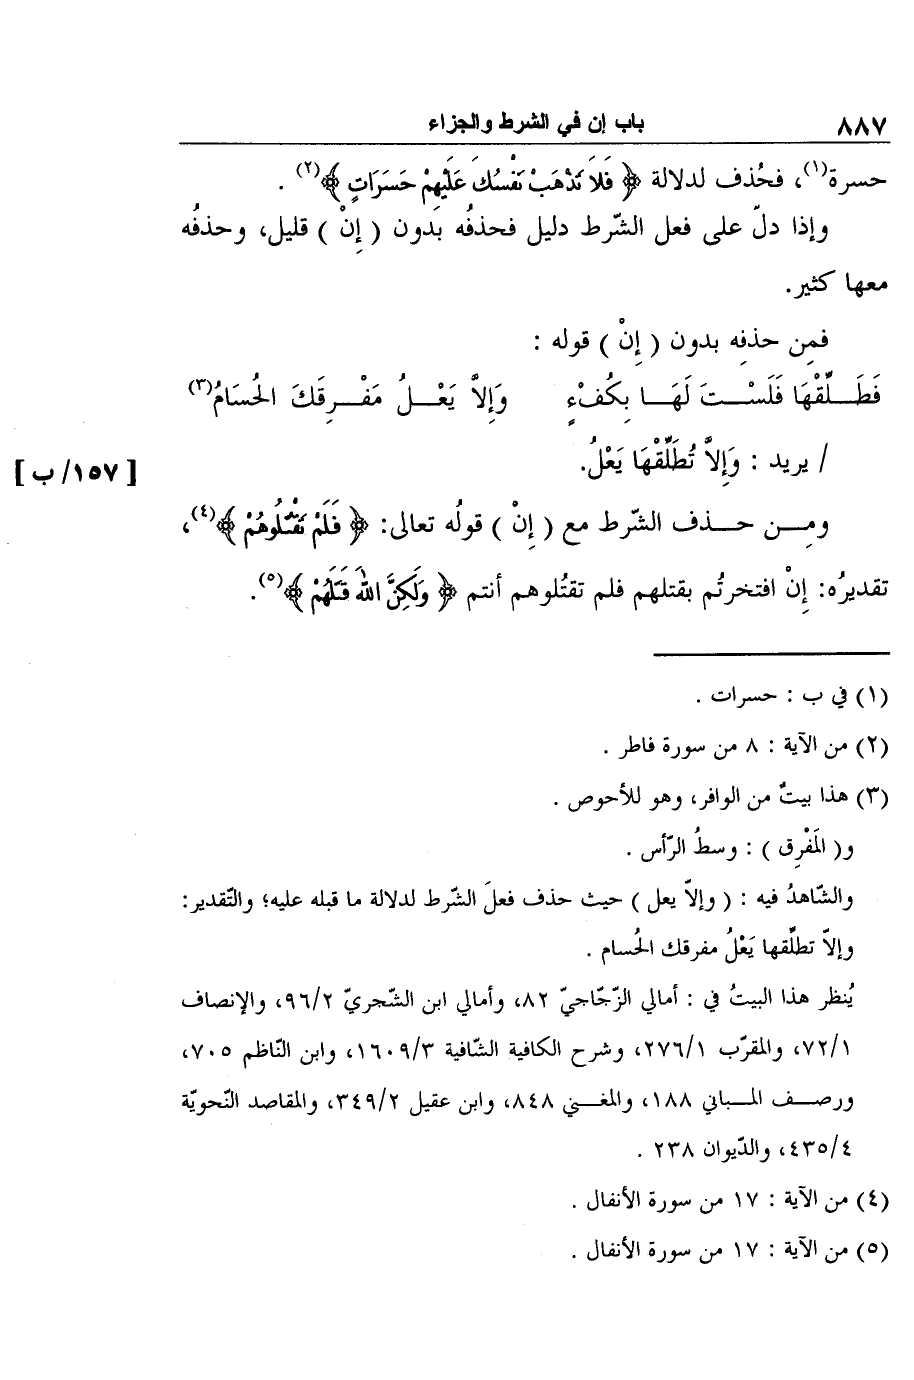 باب إن في الشرط والجزاء ٨٨٧
حسرة(١)، فحُذف لدلالة ﴿ فَلاَ تَذْهَبْ نَفْسُكَ عَلَيْهِمْ حَسَرَاتٍ ﴾(٢) .
وإذا دلّ على فعل الشّرط دليل فحذفُه بَدون ( إِنْ ) قليل، وحذفُه
معها كثير.
فمِن حذفِه بدون ( إِنْ ) قوله :
فَطَـلِّقْهَا فَلَسْـتَ لَهَـا بِكُفْءٍ وَإِلاَّ يَعْـلُ مَفْـرِقَكَ الحُسَامُ(٣)
/ يريد : وَإِلاَّ تُطَلِّقْهَا يَعْلُ. [ ١٥٧/ ب ]
ومِـن حـذف الشّرط مع ( إِنْ ) قولُه تعالى: ﴿ فَلَمْ تَقْتُلُوهُمْ ﴾(٤)،
تقديرُه: إِنْ افتخرتُم بقتلهم فلم تقتُلوهم أنتم ﴿ وَلَكِنَّ اللهَ قَتَلَهُمْ ﴾(٥).
(١) في ب : حسرات .
(٢) من الآية : ٨ من سورة فاطر .
(٣) هذا بيتٌ من الوافر، وهو للأحوص .
و( المَفْرِق ) : وسطُ الرّأس .
والشّاهدُ فيه : ( وإلاّ يعل ) حيث حذف فعلَ الشّرط لدلالة ما قبله عليه؛ والتّقدير:
وإلاّ تطلِّقها يَعْلُ مفرقك الحُسام .
يُنظر هذا البيتُ في : أمالي الزّجّاجيّ ٨٢، وأمالي ابن الشّجريّ ٩٦/٢، والإنصاف
٧٢/١، والمقرّب ٢٧٦/١، وشرح الكافية الشّافية ١٦٠٩/٣، وابن النّاظم ٧٠٥،
ورصـف المـباني ١٨٨، والمغـني ٨٤٨، وابن عقيل ٣٤٩/٢، والمقاصد النّحويّة
٤٣٥/٤، والدّيوان ٢٣٨ .
(٤) من الآية : ١٧ من سورة الأنفال .
(٥) من الآية : ١٧ من سورة الأنفال .